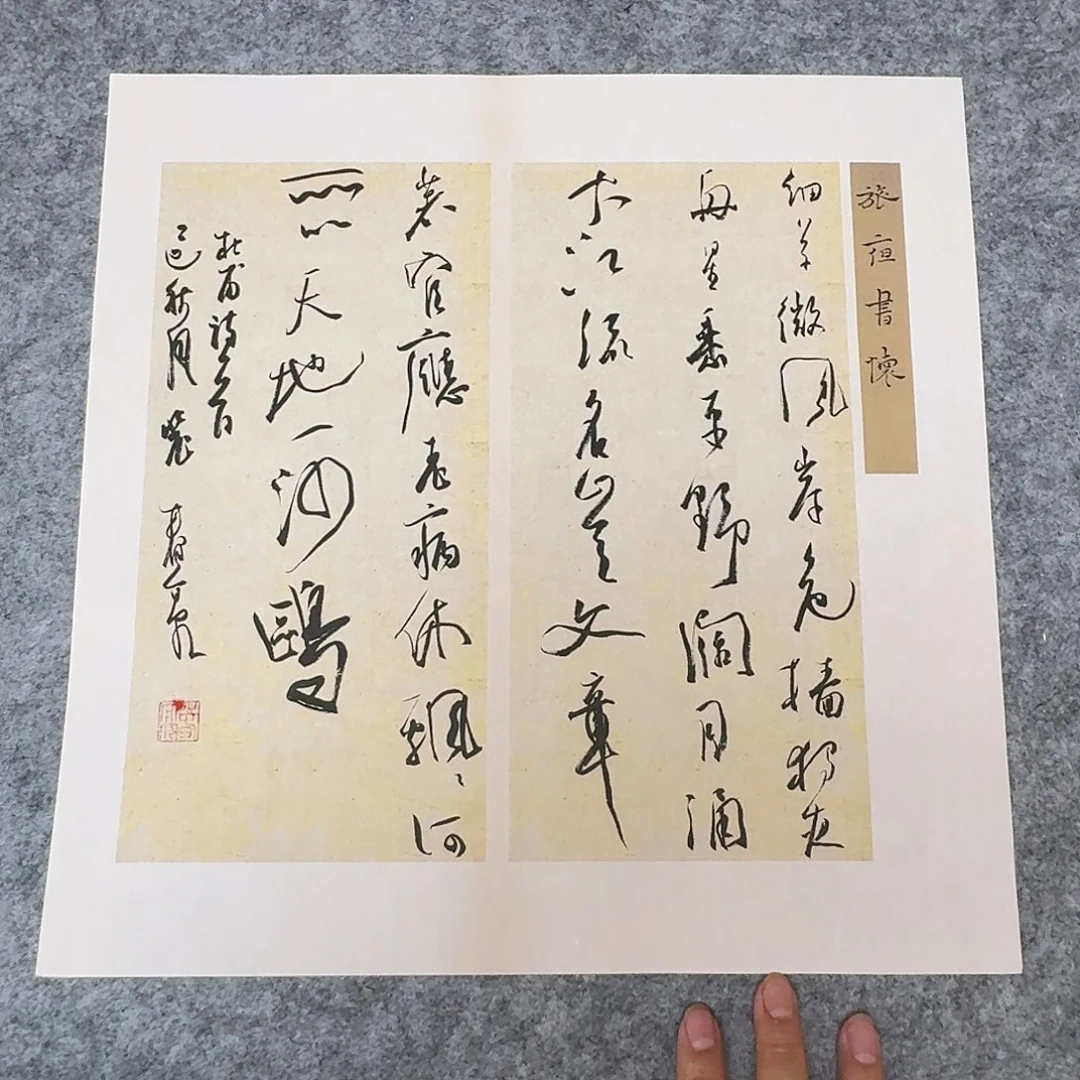 旅夜書懷
細草微風岸危檣獨夜
舟星垂平野闊月涌
大江流名豈文章
著官應老病休飄〻何
所似天地一沙鷗
杜甫詩一首
秋月